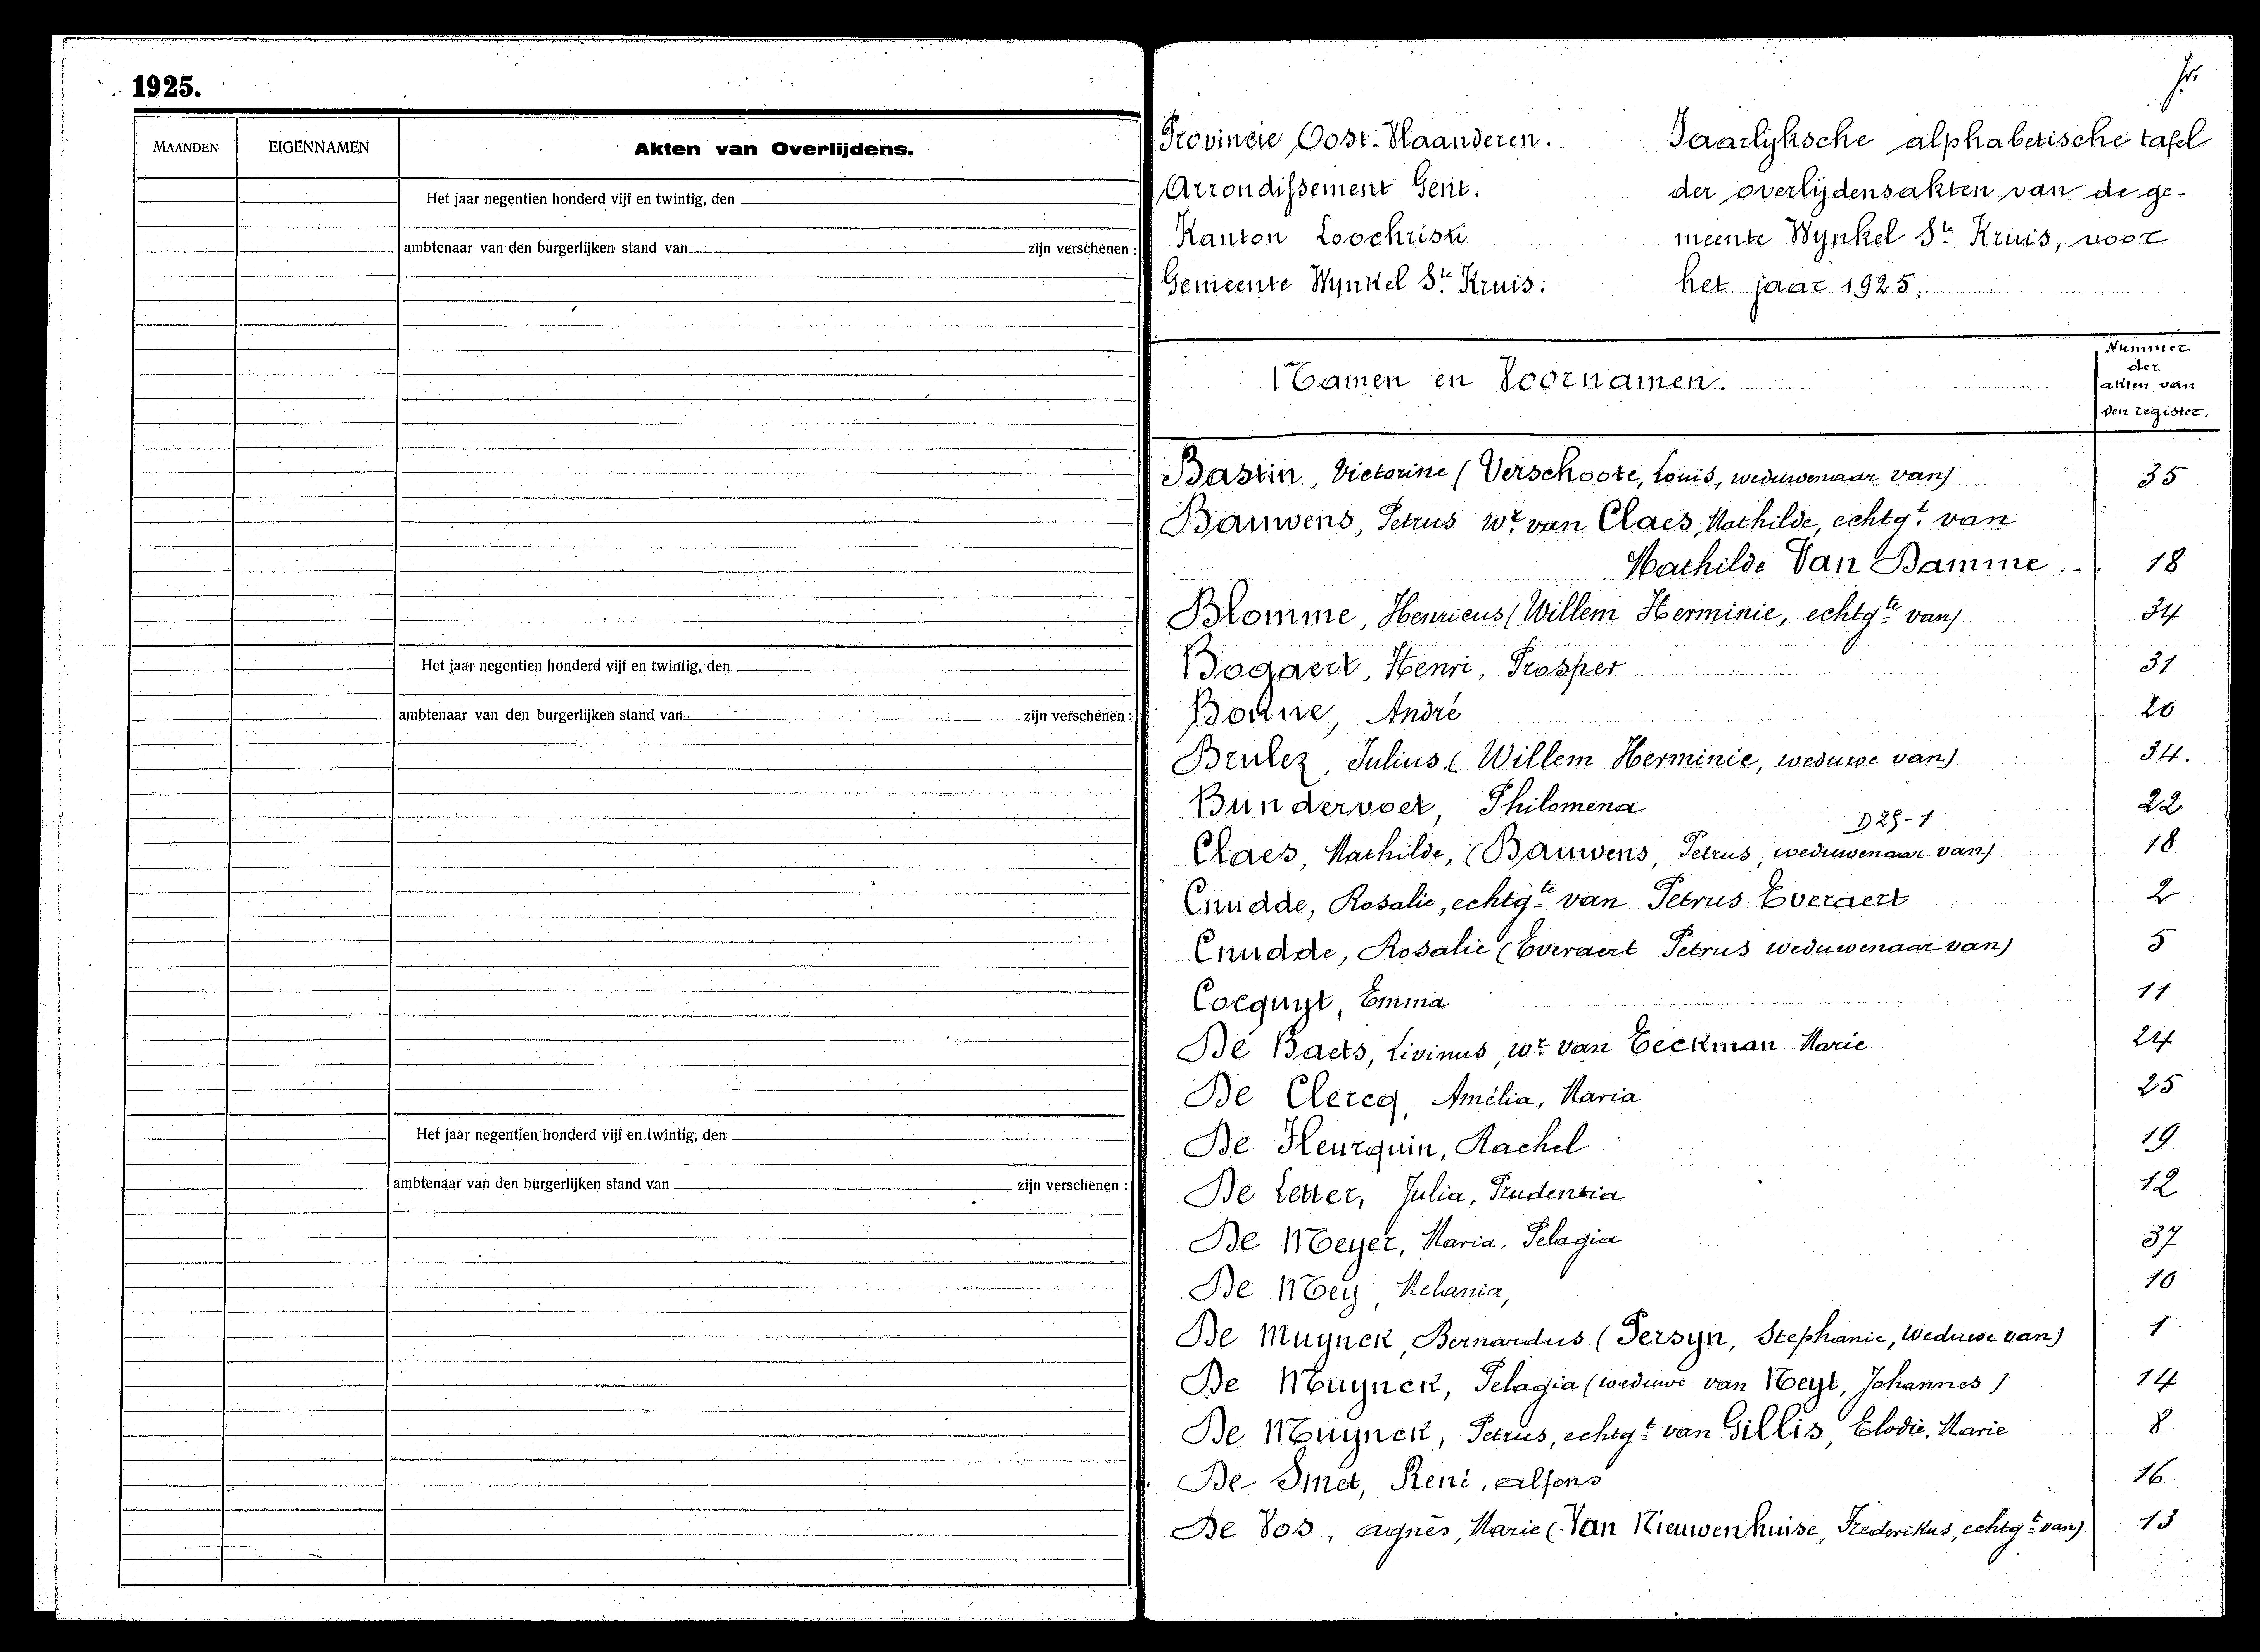 1925.
MAANDEN
EIGENNAMEN
Akten van Overlijdens.
Het jaar negentien honderd vijf en twintig, den
ambtenaar van den burgerlijken stand van zijn verschenen :
Het jaar negentien honderd vijf en twintig, den
ambtenaar van den burgerlijken stand van zijn verschenen :
Het jaar negentien honderd vijf en twintig, den
ambtenaar van den burgerlijken stand van zijn verschenen :
Provincie Oost-Vlaanderen.
Arrondissement Gent.
Kanton Loochristi
Gemeente Wynkel St. Kruis:
Jaarlijksche alphabetische tafel
der overlijdensakten van de ge-
meente Wynkel St. Kruis, voor
het jaar 1925.
Namen en Voornamen.
Nummer
der
akten van
den register.
Bastin, Victorine (Verschoore, Louis, weduwenaar van) 35
Bauwens, Petrus wr. van Claes, Mathilde, echtgt. van
Mathilde Van Damme. 18
Blomme, Henricus (Willem Herminie, echtgte van) 34
Bogaert, Henri, Prosper 31
Bonne, André 20
Brulez, Julius (Willem Herminie, weduwe van) 34.
Bundervoet, Philomena 22
D 29-1
Claes, Mathilde, (Bauwens, Petrus, weduwenaar van) 18
Cnudde, Rosalie, echtgte van Petrus Everaert 2
Cnudde, Rosalie (Everaert Petrus weduwenaar van) 5
Cocquyt, Emma 11
De Baets, Livinus, wr. van Eeckman Marie 24
De Clercq, Amélia, Maria 25
De Heurquin, Rachel 19
De Letter, Julia, Prudentia 12
De Meyer, Maria, Pelagia 37
De Mey, Melania, 10
De Muynck, Bernardus (Persyn, Stephanie, Weduwe van) 1
De Muynck, Pelagia (weduwe van Neyt, Johannes) 14
De Muynck, Petrus, echtgt. van Gillis, Elodie, Marie 8
De Smet, René, Alfons 16
De Vos, Agnès, Marie (Van Nieuwenhuise, Frederikus, echtgt. van) 13